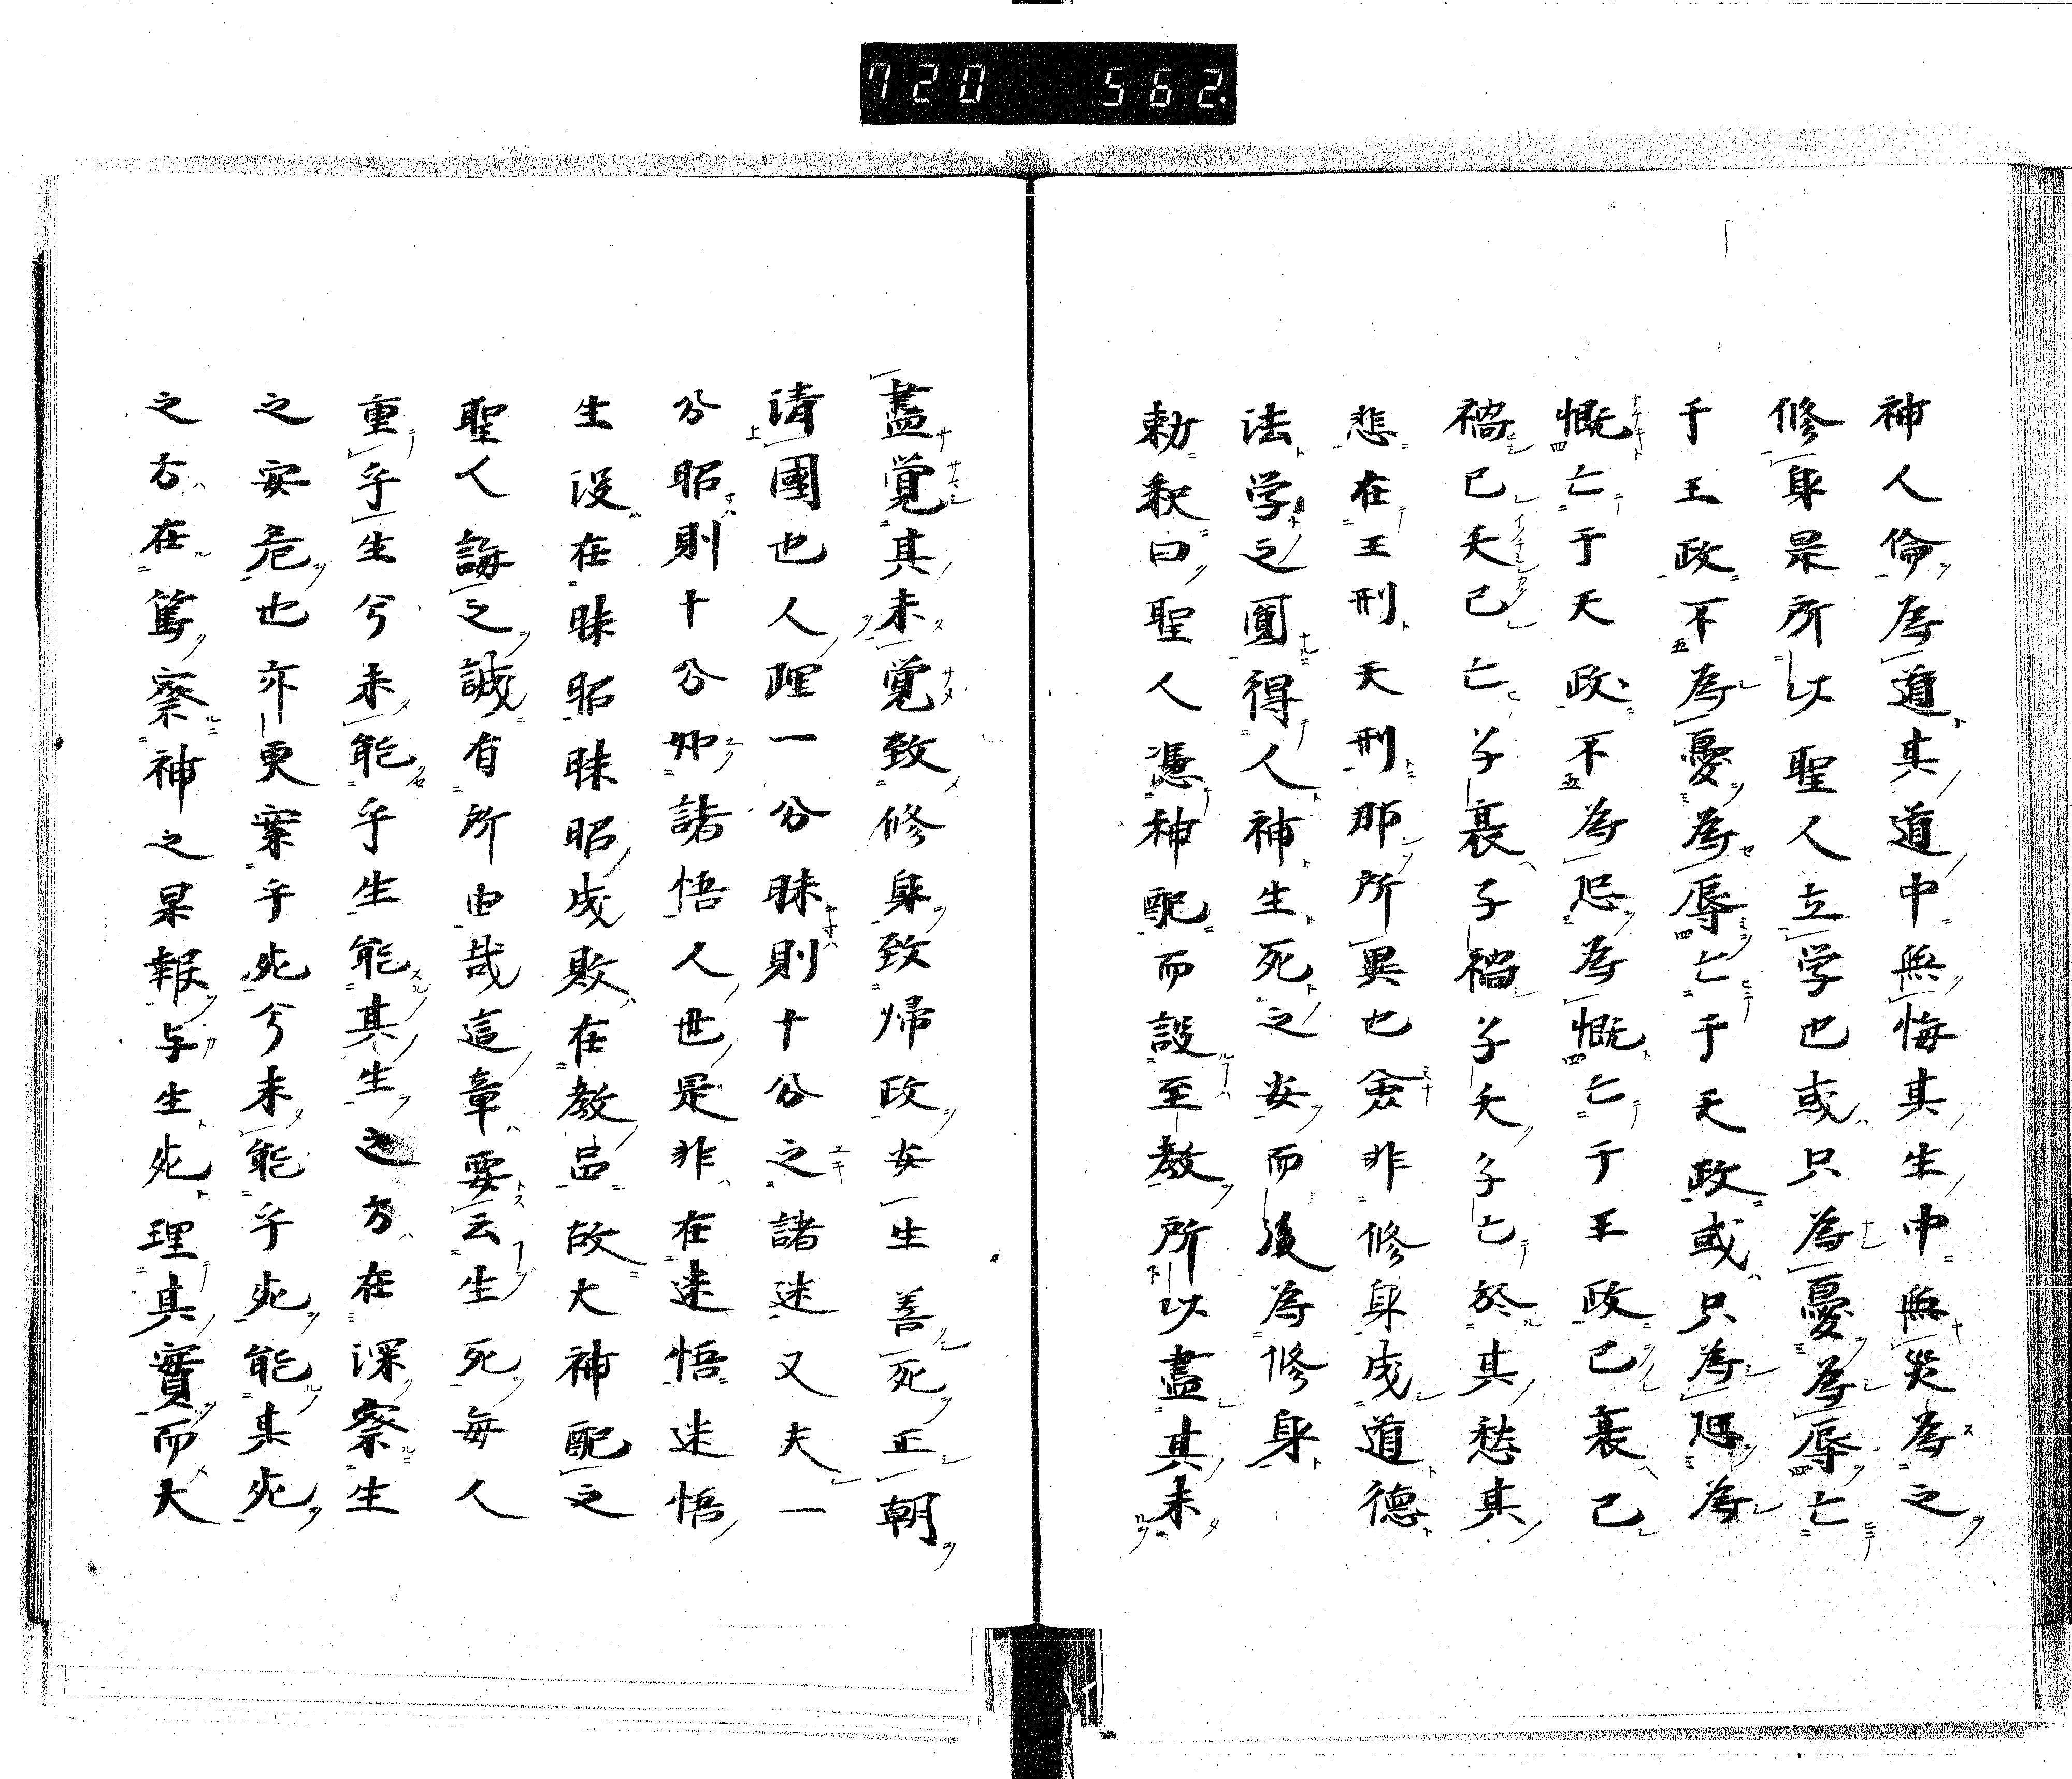 720 562.
神人倫為道其道中無悔其生中無災為之
修身是所以聖人立学也或只為憂為辱亡
于王政不為憂為辱亡于天政或只為𠎝為
慨亡于天政不為𠎝為慨亡于王政己衰己
禍己夭己亡子衰子禍子夭子亡於其愁其
悲在王刑天刑那所異也僉非修身成道德
法学之圓得人神生死之安而後為修身
勅釈曰聖人憑神配而設至教所以盡其未
盡覚其未覚致修身致帰政安生善死正朝
清國也人理一分昧則十分之諸迷又夫一
分昭則十分如諸悟人世是非在迷悟迷悟
生没在昧昭昧昭成敗在教品故大神配之
聖人誨之誠有所由哉這章要云生死毎人
重乎生兮未能乎生能其生之方在深察生
之安危也亦更案乎死兮未能乎死能其死
之方在篤察神之果報与生死理其實而大